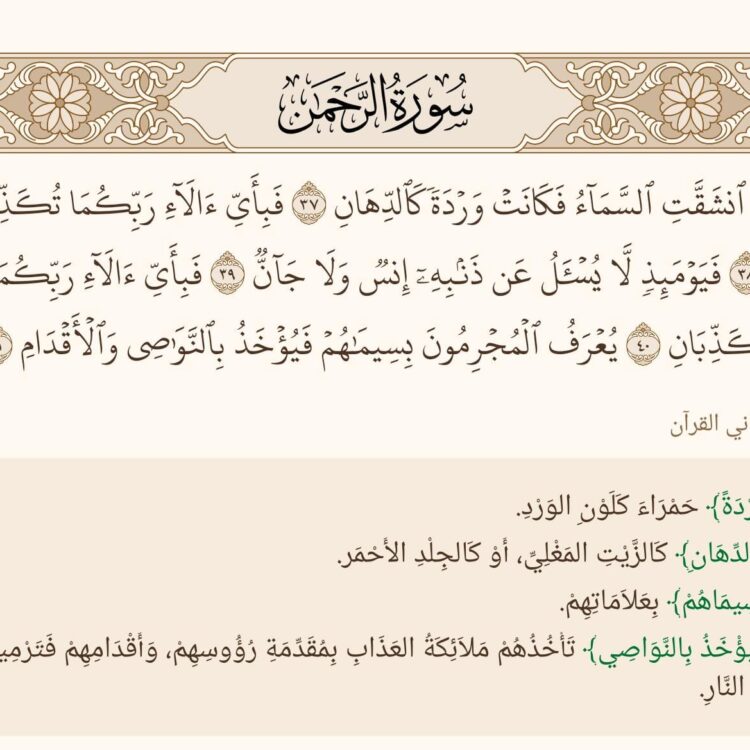 سُورَةُ الرَّحْمَٰن
ٱنشَقَّتِ ٱلسَّمَآءُ فَكَانَتْ وَرْدَةً كَٱلدِّهَانِ ٣٧ فَبِأَيِّ ءَالَآءِ رَبِّكُمَا تُكَذِّ
٣٨ فَيَوْمَئِذٍ لَّا يُسْـَٔلُ عَن ذَنۢبِهِۦٓ إِنسٌ وَلَا جَآنٌّ ٣٩ فَبِأَيِّ ءَالَآءِ رَبِّكُمَا
كَذِّبَانِ ٤٠ يُعْرَفُ ٱلْمُجْرِمُونَ بِسِيمَـٰهُمْ فَيُؤْخَذُ بِٱلنَّوَٰصِى وَٱلْأَقْدَامِ
ني القرآن
رْدَةً﴾ حَمْرَاءَ كَلَوْنِ الوَرْدِ.
لدِّهَانِ﴾ كَالزَّيْتِ المَغْلِيِّ، أَوْ كَالجِلْدِ الأَحْمَر.
سِيمَاهُمْ﴾ بِعَلَامَاتِهِمْ.
يُؤْخَذُ بِالنَّوَاصِي﴾ تَأْخُذُهُمْ مَلاَئِكَةُ العَذَابِ بِمُقَدِّمَةِ رُؤُوسِهِمْ، وَأَقْدَامِهِمْ فَتَرْمِي
النَّارِ.